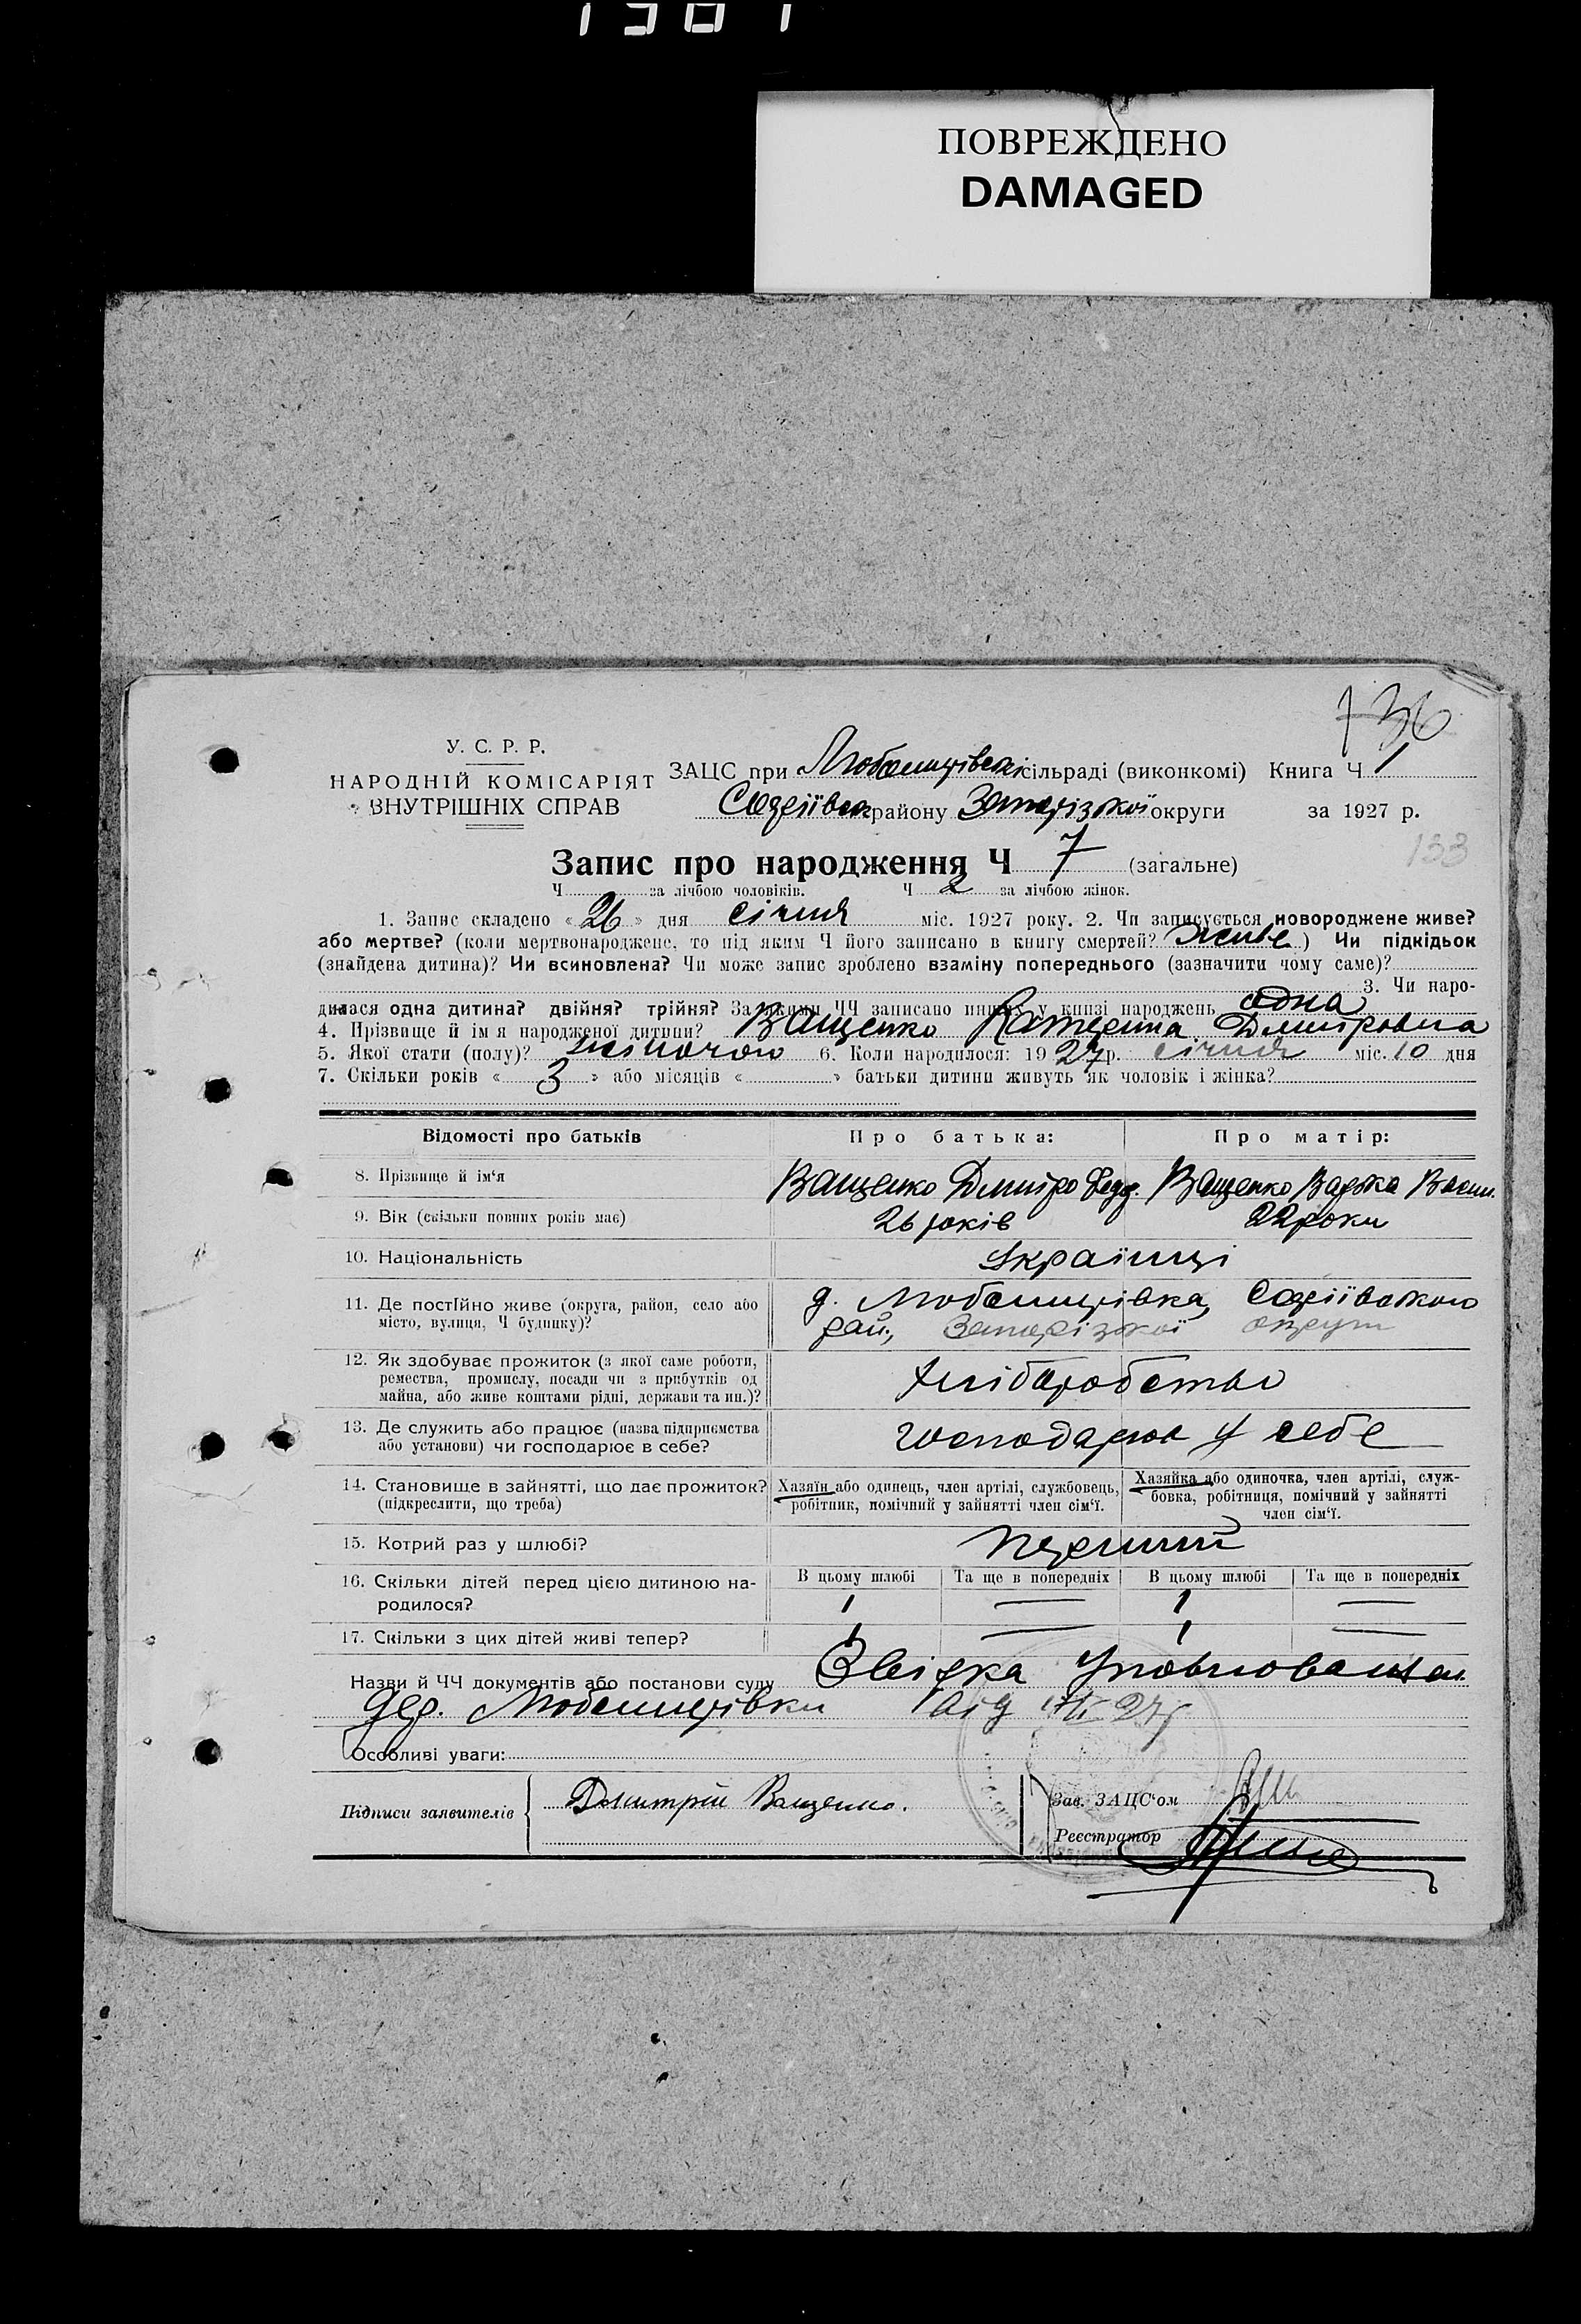 1387
ПОВРЕЖДЕНО
DAMAGED
736
У. С. Р. Р.
НАРОДНІЙ КОМІСАРІЯТ
ВНУТРІШНІХ СПРАВ
ЗАЦС при Любомирівськ сільраді (виконкомі) Книга Ч 1
Софіївськ району Запорізької округи за 1927 р.
133
Запис про народження Ч 7 (загальне)
Ч за лічбою чоловіків. Ч 2 за лічбою жінок.
1. Запис складено «26» дня січня міс. 1927 року. 2. Чи записується новороджене живе?
або мертве? (коли мертвонароджене, то під яким Ч його записано в книгу смертей? живе) Чи підкідьок
(знайдена дитина)? Чи всиновлена? Чи може запис зроблено взаміну попереднього (зазначити чому саме)?
3. Чи наро-
дилася одна дитина? двійня? трійня? За якими ЧЧ записано инших у книзі народжень одна
4. Прізвище й ім'я народженої дитини? Ващенко Катерина Дмитровна
5. Якої стати (полу)? жіночою 6. Коли народилося: 1927 р. січня міс. 10 дня
7. Скільки років «3» або місяців « » батьки дитини живуть як чоловік і жінка?
Відомості про батьків Про батька: Про матір:
8. Прізвище й ім'я Ващенко Дмитро Федор. Ващенко Варька Васил.
9. Вік (скільки повних років має) 26 років 22 роки
10. Національність Українці
11. Де постійно живе (округа, район, село або місто, вулиця, Ч будинку)? д. Любомирівка, Софіївського
рай., Запорізької округи
12. Як здобуває прожиток (з якої саме роботи,
ремества, промислу, посади чи з прибутків од
майна, або живе коштами рідні, держави та ин.)? хліборобство
13. Де служить або працює (назва підприємства
або установи) чи господарює в себе? господарює у себе
14. Становище в зайнятті, що дає прожиток?
(підкреслити, що треба)
Хазяїн або одинець, член артілі, службовець,
робітник, помічний у зайнятті член сім'ї.
Хазяйка або одиночка, член артілі, служ-
бовка, робітниця, помічний у зайнятті
член сім'ї.
15. Котрий раз у шлюбі? перший
16. Скільки дітей перед цією дитиною на-
родилося?
В цьому шлюбі Та ще в попередніх В цьому шлюбі Та ще в попередніх
1 — 1 —
17. Скільки з цих дітей живі тепер? 1 — 1 —
Назви й ЧЧ документів або постанови суду Звідка Уповноважен
дер. Любомирівки від 27р
Особливі уваги:
Підписи заявителів Дмитрій Ващенко.
Зав. ЗАЦС'ом
Реєстратор